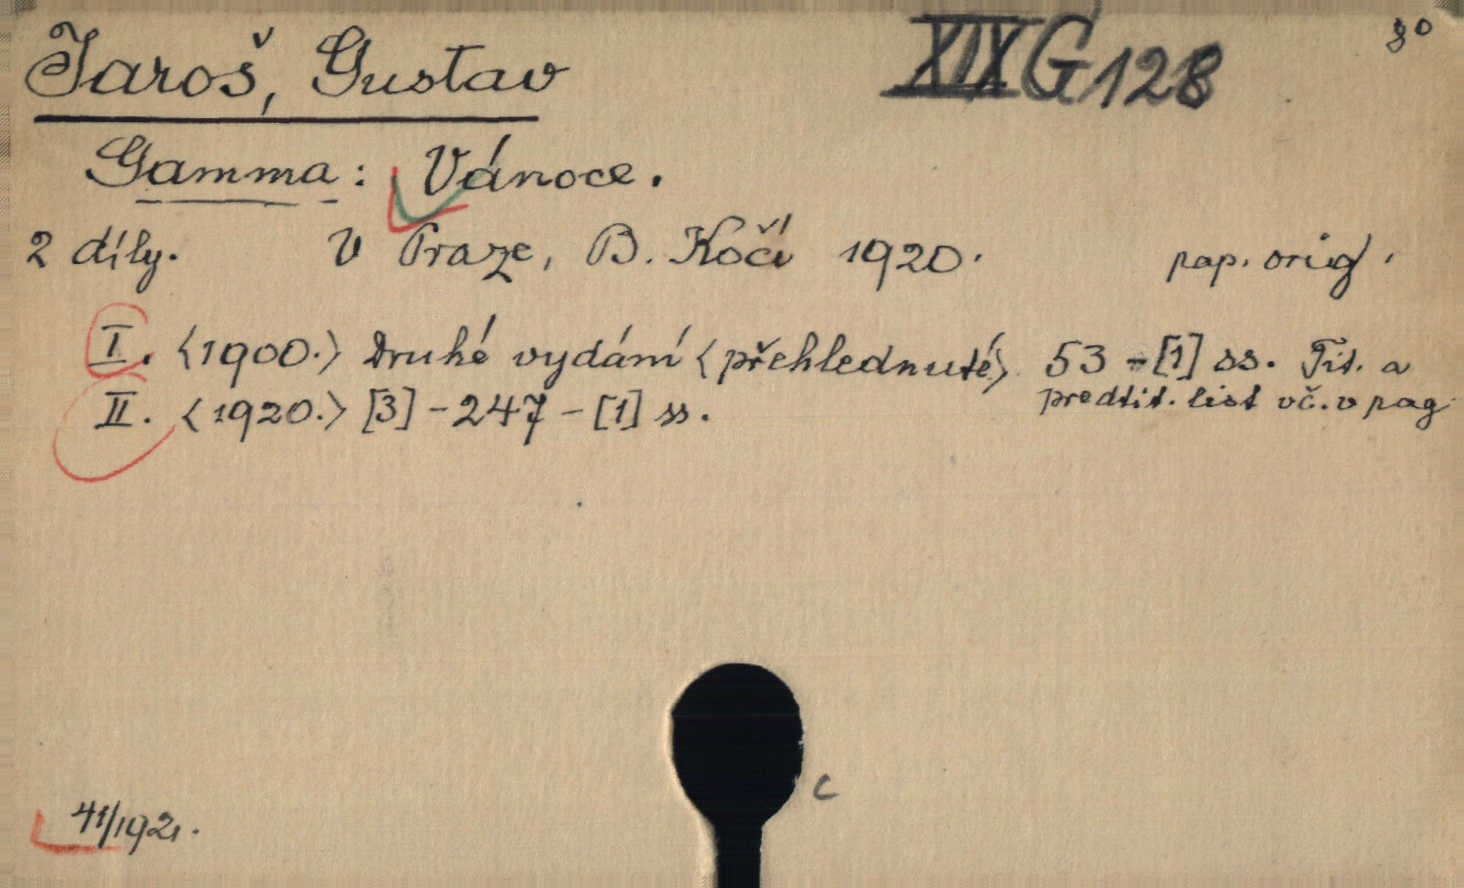 Jaroš, Gustav XIX G 128 8°
Gamma: Vánoce.
2 díly. V Praze, B. Kočí 1920. pap. orig.
I. <1900.> Druhé vydání <přehlednuté> 53 - [1] ss. Tit. a
predtit. list vč. v pag.
II. <1920.> [3] - 247 - [1] ss.
c
41/1921.